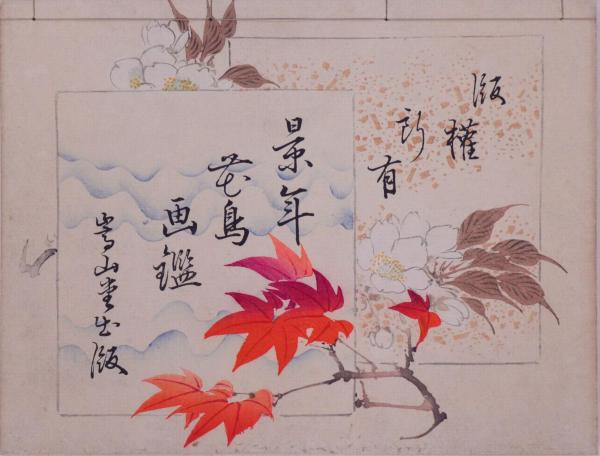 版權
所有
景年
花鳥
画鑑
嵩山堂出版